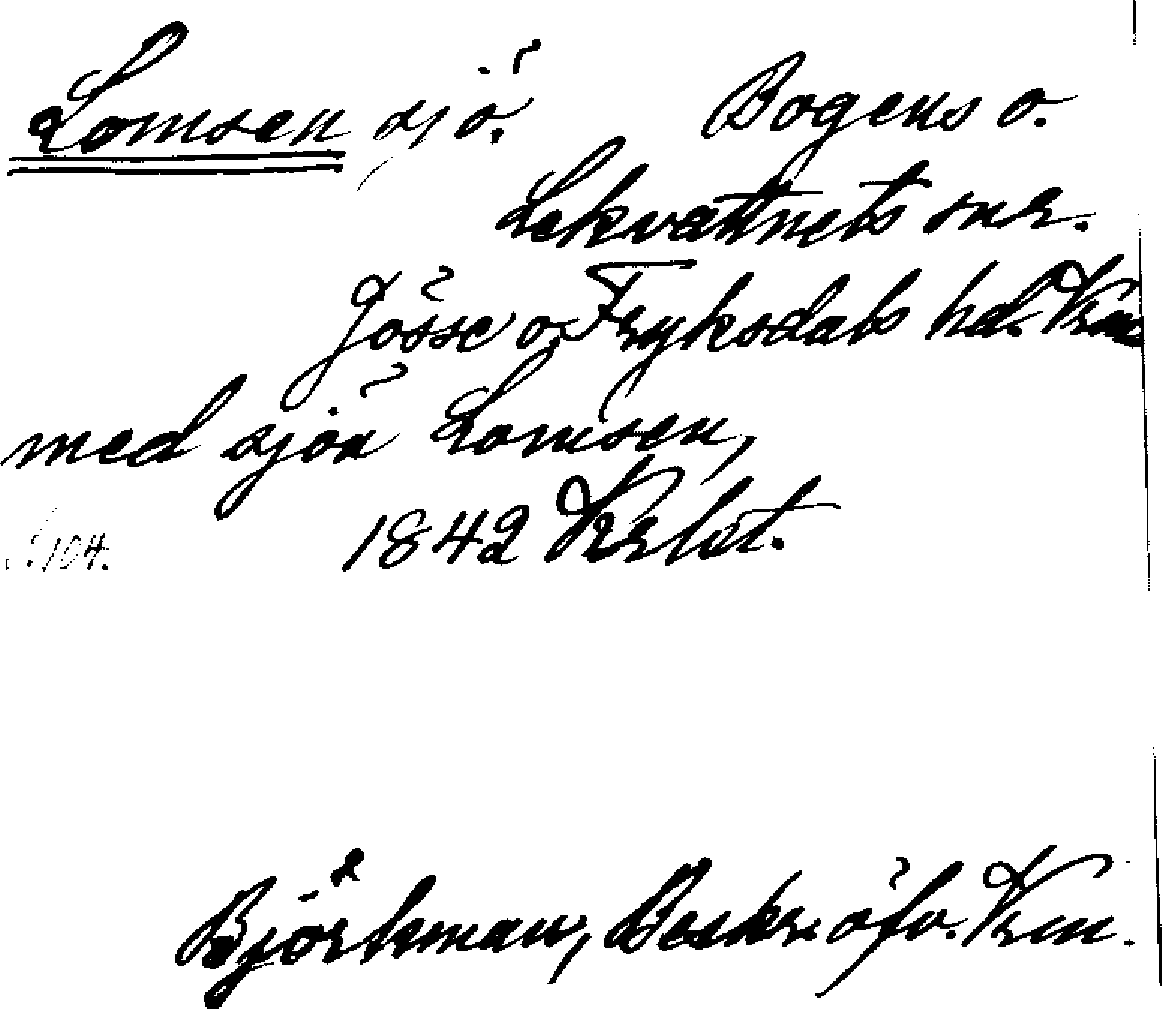 Lomsen sjö. Bogens o.
Lekvattnets snr.
Jösse o. Fryksdals hd. Vrm
med sjön Lomsen,
S. 104. 1842
Björkman, Beskr. öfv. Vrm.